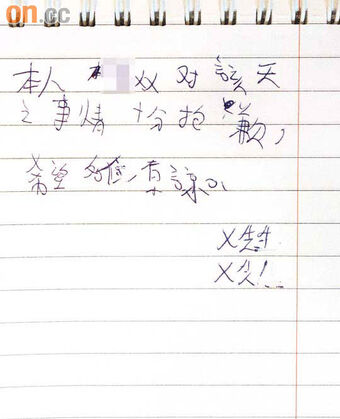 on.cc
本人 XX 对該天
之事情 十份抱歉,
希望 原諒
X先生
X